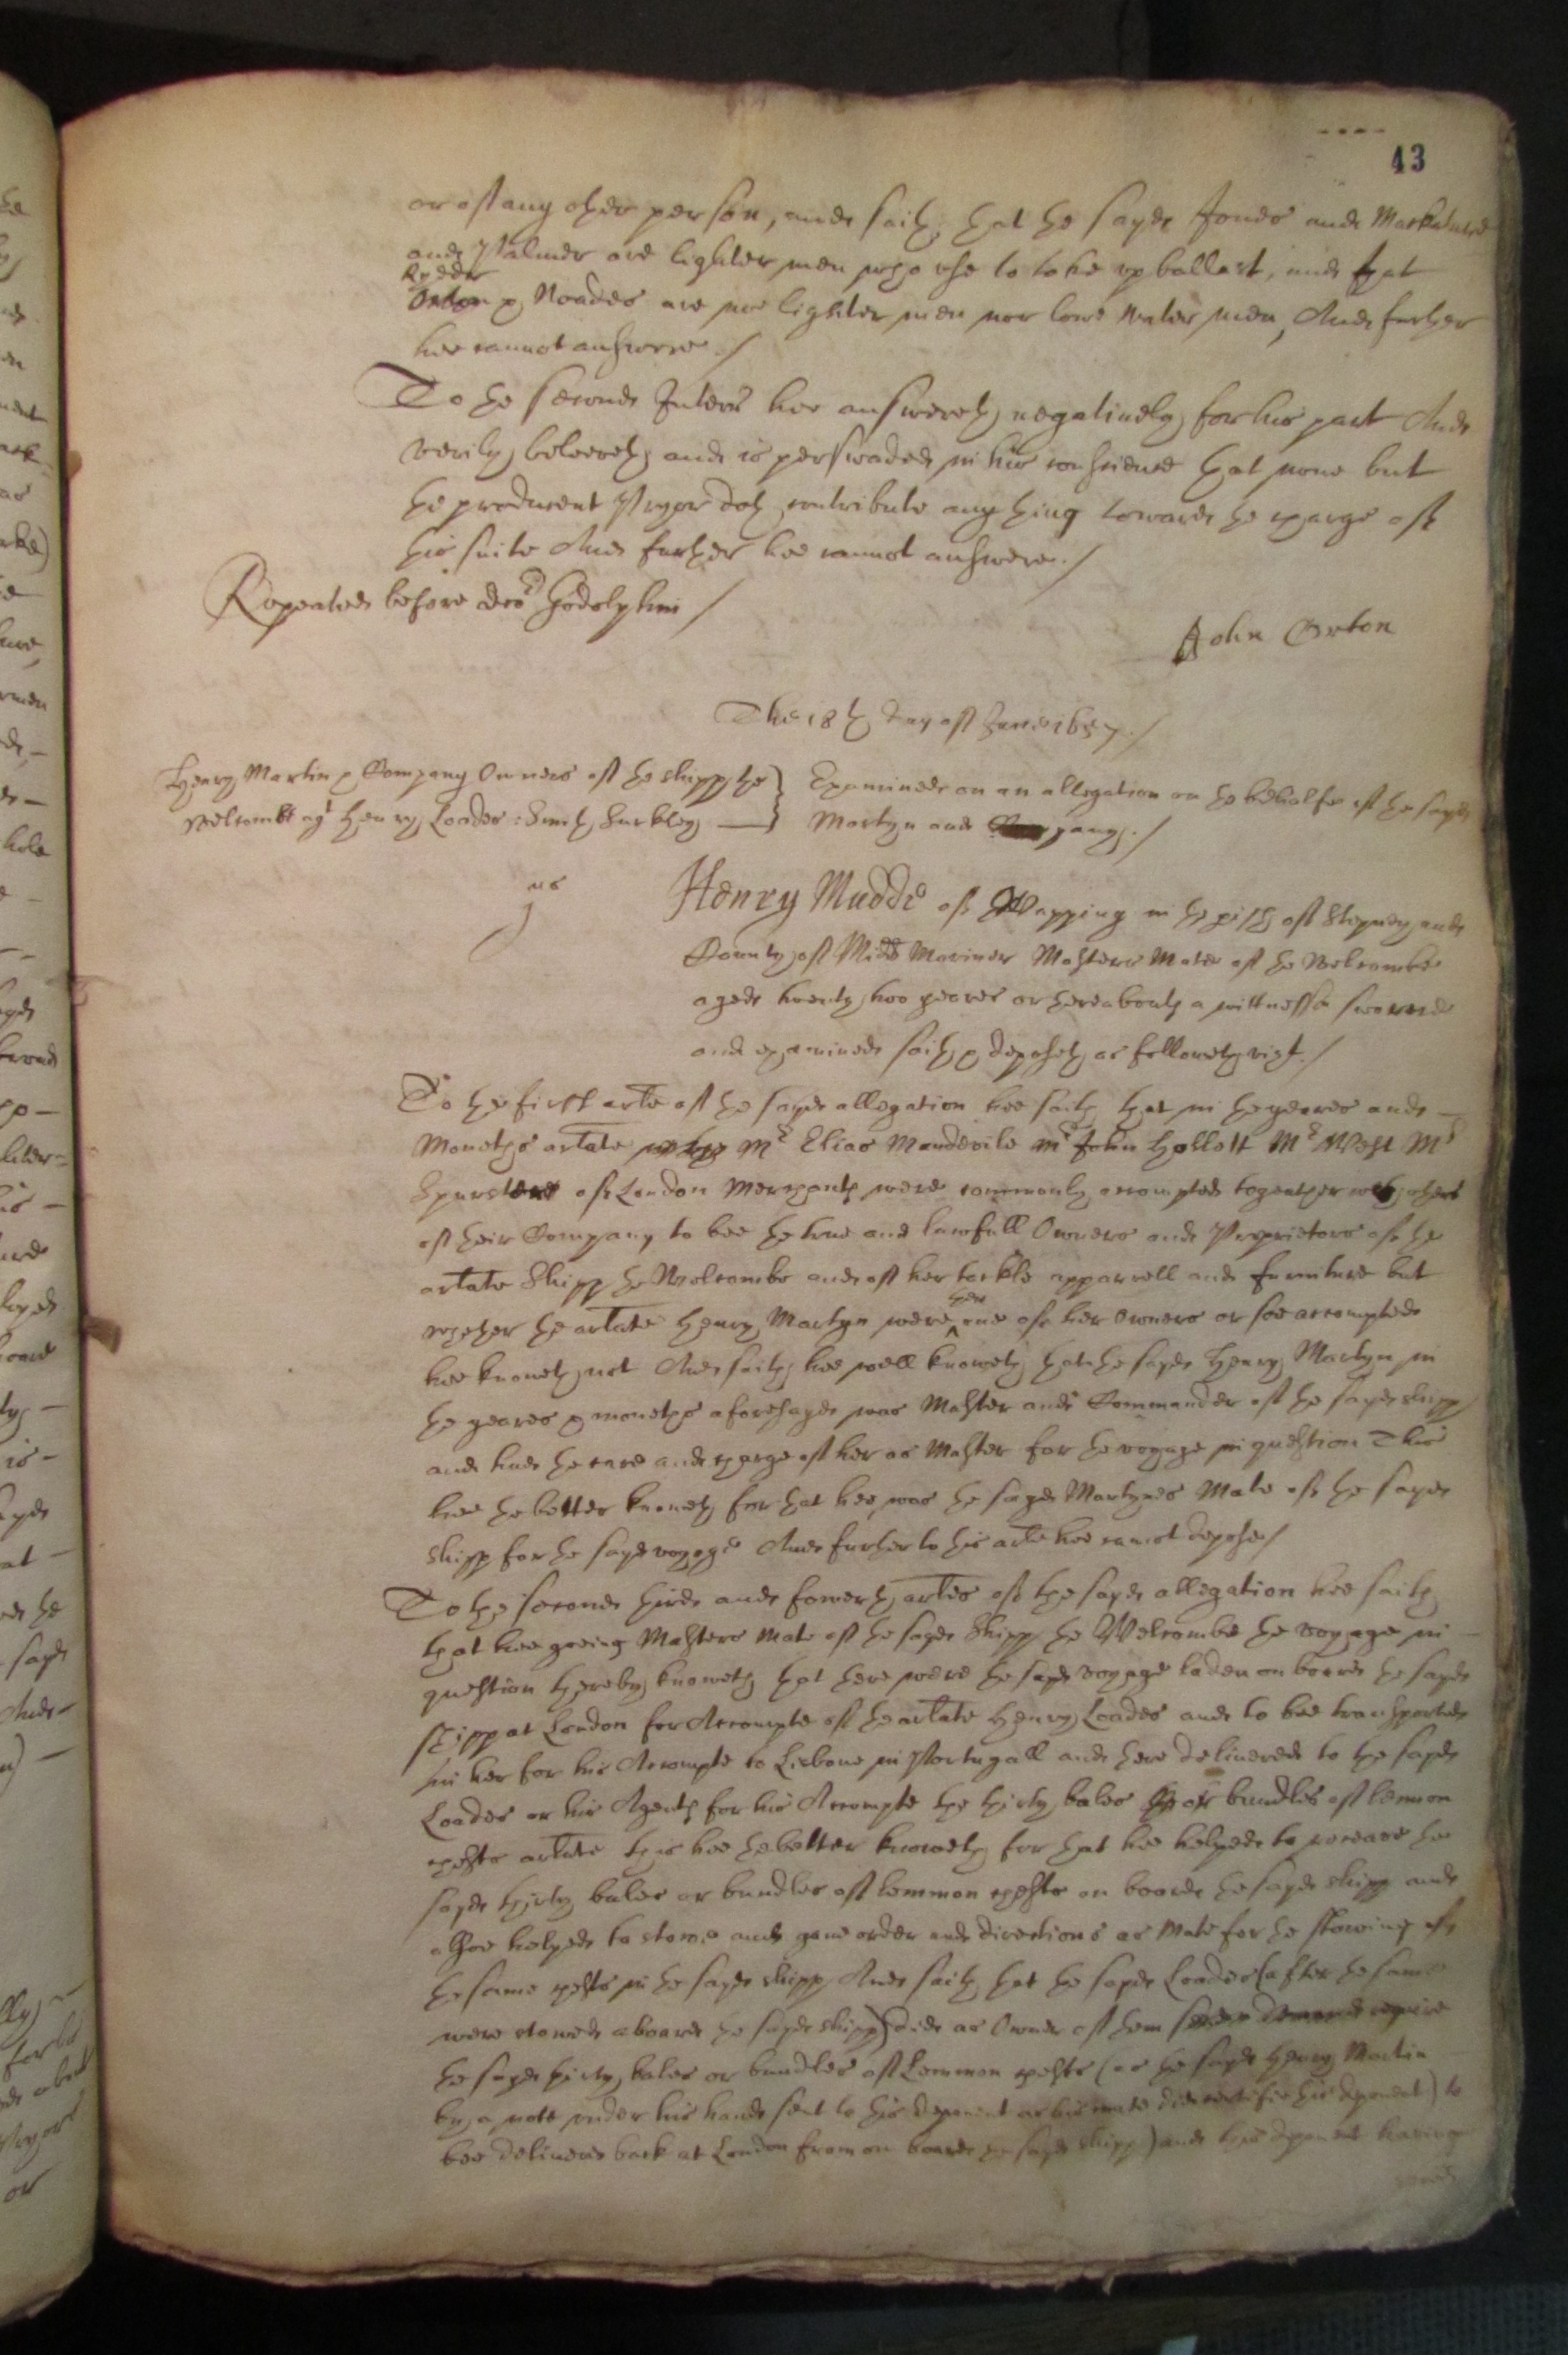 43
or of any other person, and saith that the sayd Jones and
and Palmer are lighter men who use to take up ballast, and that
Ryder
Orton & Noades are noe lighter men nor lowe water men, And further
hee cannot answere./
To the second Interr hee answereth negatively for his part And
verily beleeveth and is perswaded in his conscience that none but
the producent Pryor doth contribute any thing towards the charge of
this suite And further hee cannot answere./
Repeated before doctor Godolphin/
John Orton
The 18th day of June 1657./
Henry Martin & Company Owners of the shipp the
Welcombe agt Henry Loades: Smith Suckley
Examined on an allegation on the behalfe of the sayd
Martyn and Company./
jus
Henry Mudds of Wapping in the pish of Stepney and
County of Midd Mariner Masters Mate of the Welcombe
aged twenty two yeares or thereabouts a wittnesse sworne
and examined saith & deposeth as followeth vizt./
To the first arte of the sayd allegation hee saith that in the yeares and
Moneths arlate Mr Elias Mandevile Mr John Hollott Mr West Mr
of London Merchants were commonly accompted together with others
of their Company to bee the true and lawfull Owners and Proprietors of the
arlate Shipp the Welcombe and of her tackle apparrell and furniture but
whether the arlate Henry Martyn were then one of her Owners or soe accompted
hee knoweth not And saith hee well knoweth that the sayd Henry Martyn in
the yeares & moneths aforesayd was Master and Commander of the sayd shipp
and had the care and charge of her as Master for the voyage in question This
hee the better knoweth for that hee was the sayd Martynes Mate of the sayd
shipp for the sayd voyage And further to this arte hee cannot depose/
To the second third and fowerth artes of the sayd allegation hee saith
that hee goeing Masters Mate of the sayd Shipp the Welcombe the voyage in
question thereby knoweth that there were the sayd voyage laden on board the sayd
shipp at London for Accompte of the arlate Henry Loades and to bee transported
in her for his Accompte to Lisbone in Portugall and there delivered to the sayd
Loades or his Agents for his Accompte the thirty bales or bundles of lemmon
chests arlate this hee the better knoweth for that hee helped to receave the
sayd thirty bales or bundles of lemmon chests on board the sayd shipp and
alsoe helped to stowe and gave order and directions as Mate for the stowing of
the same chests in the sayd shipp And saith that the sayd Loades (after the same
were stowed aboard the sayd shipp) did as Owner of them require
the sayd thirty bales or bundles of Lemmon chests (as the sayd Henry Martin
by a note under his hand sent to this deponent as his mate did certifie this deponent) to
bee delivered back at London from on board the sayd shipp) and this deponent having